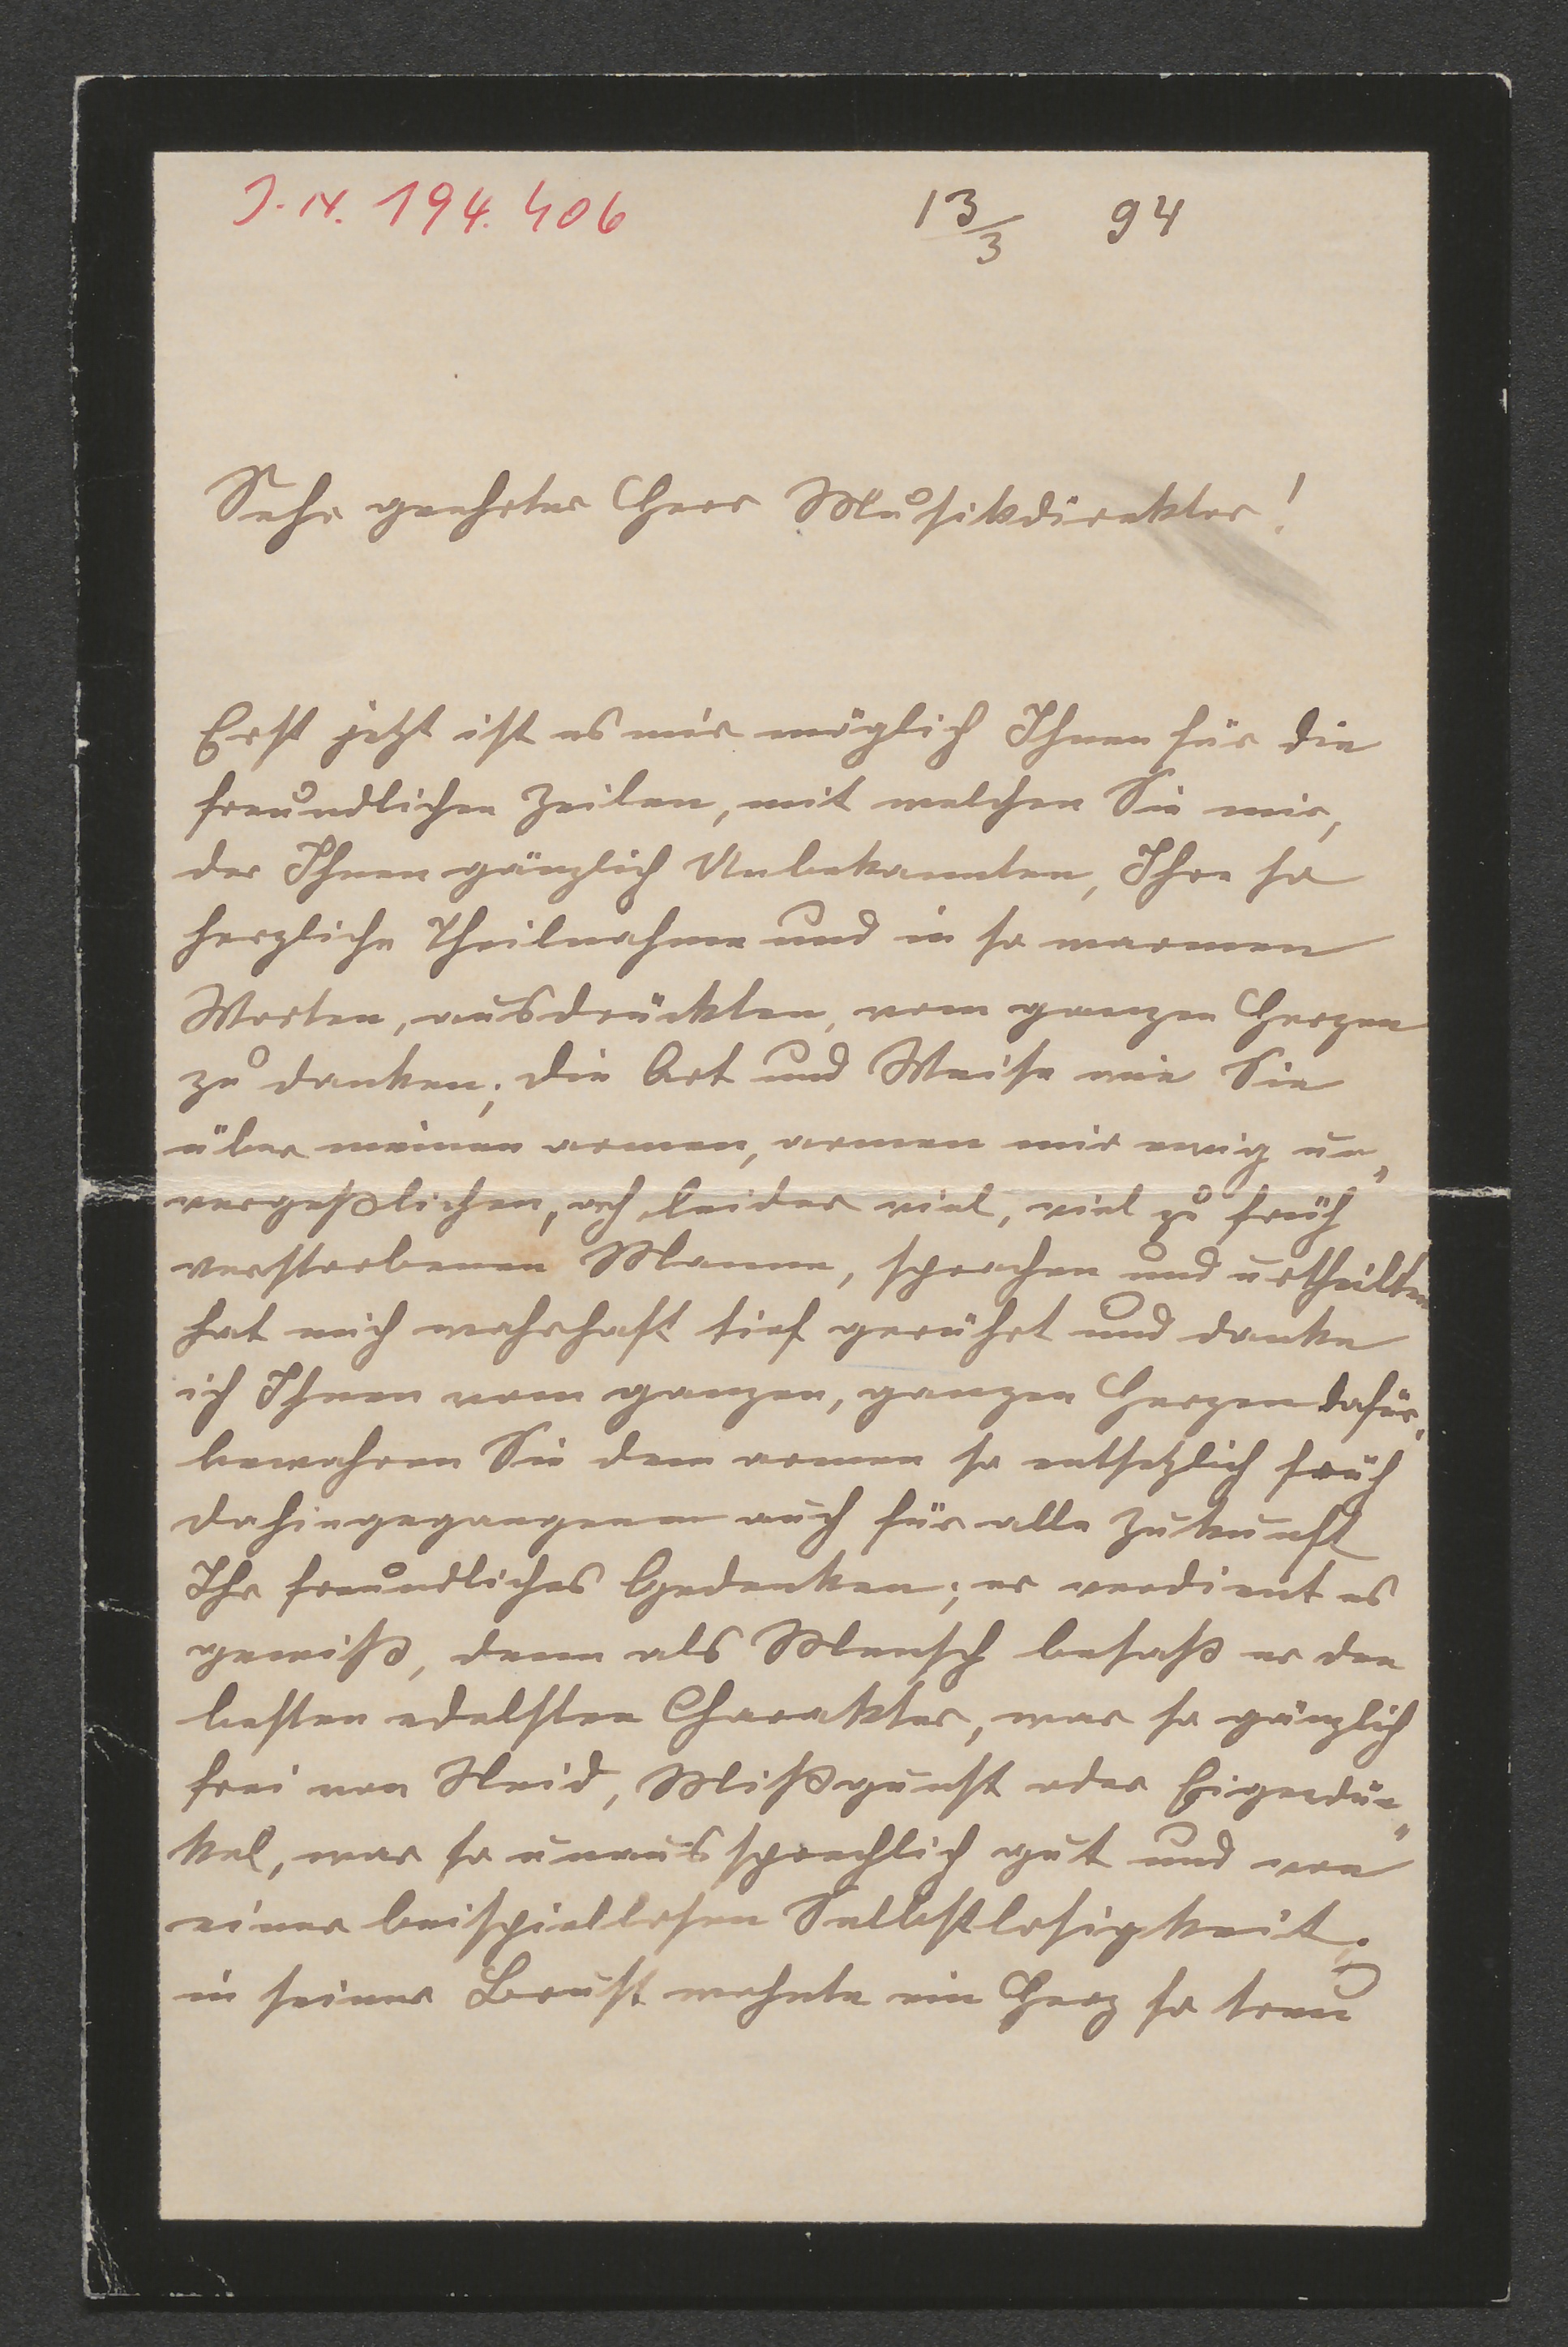 J. N. 194.406
13/3 94
Sehr geehrter Herr Musikdirektor!
Erst jetzt ist es mir möglich Ihnen für die
freundlichen Zeilen, mit welchen Sie mir,
der Ihnen gänzlich Unbekannten, Ihre so
herzliche Theilnahme und in so warmen
Worten, ausdrückten, vom ganzen Herzen
zu danken; die Art und Weise wie Sie
über meinen armen, armen mir ewig un„
vergeßlichen, ach leider viel, viel zu früh
verstorbenen Manne, sprachen und urtheilten
hat mich wahrhaft tief gerührt und danke
ich Ihnen vom ganzen, ganzen Herzen dafür,
bewahren Sie dem armen so entsetzlich früh
dahingegangenen auch für alle Zukunft
Ihr freundliches Gedenken; er verdient es
gewiß, denn als Mensch besaß er den
besten edelsten Charakter, war so gänzlich
frei von Neid, Mißgunst oder Eigendün„
kel, war so unaussprechlich gut und von
einer beispiellosen Selbstlosigkeit;
in seiner Brust wohnte ein Herz so treu